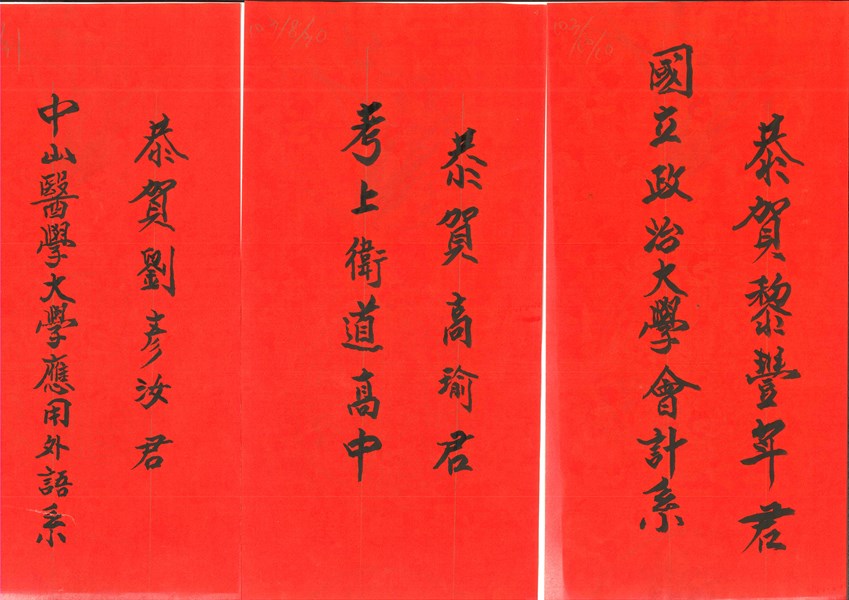 恭賀黎豐年君
國立政治大學會計系
恭賀高瑜君
考上衛道高中
恭賀劉彥汝君
中山醫學大學應用外語系